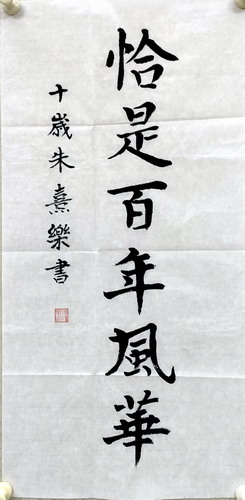 恰是百年風華
十歲朱熹樂書